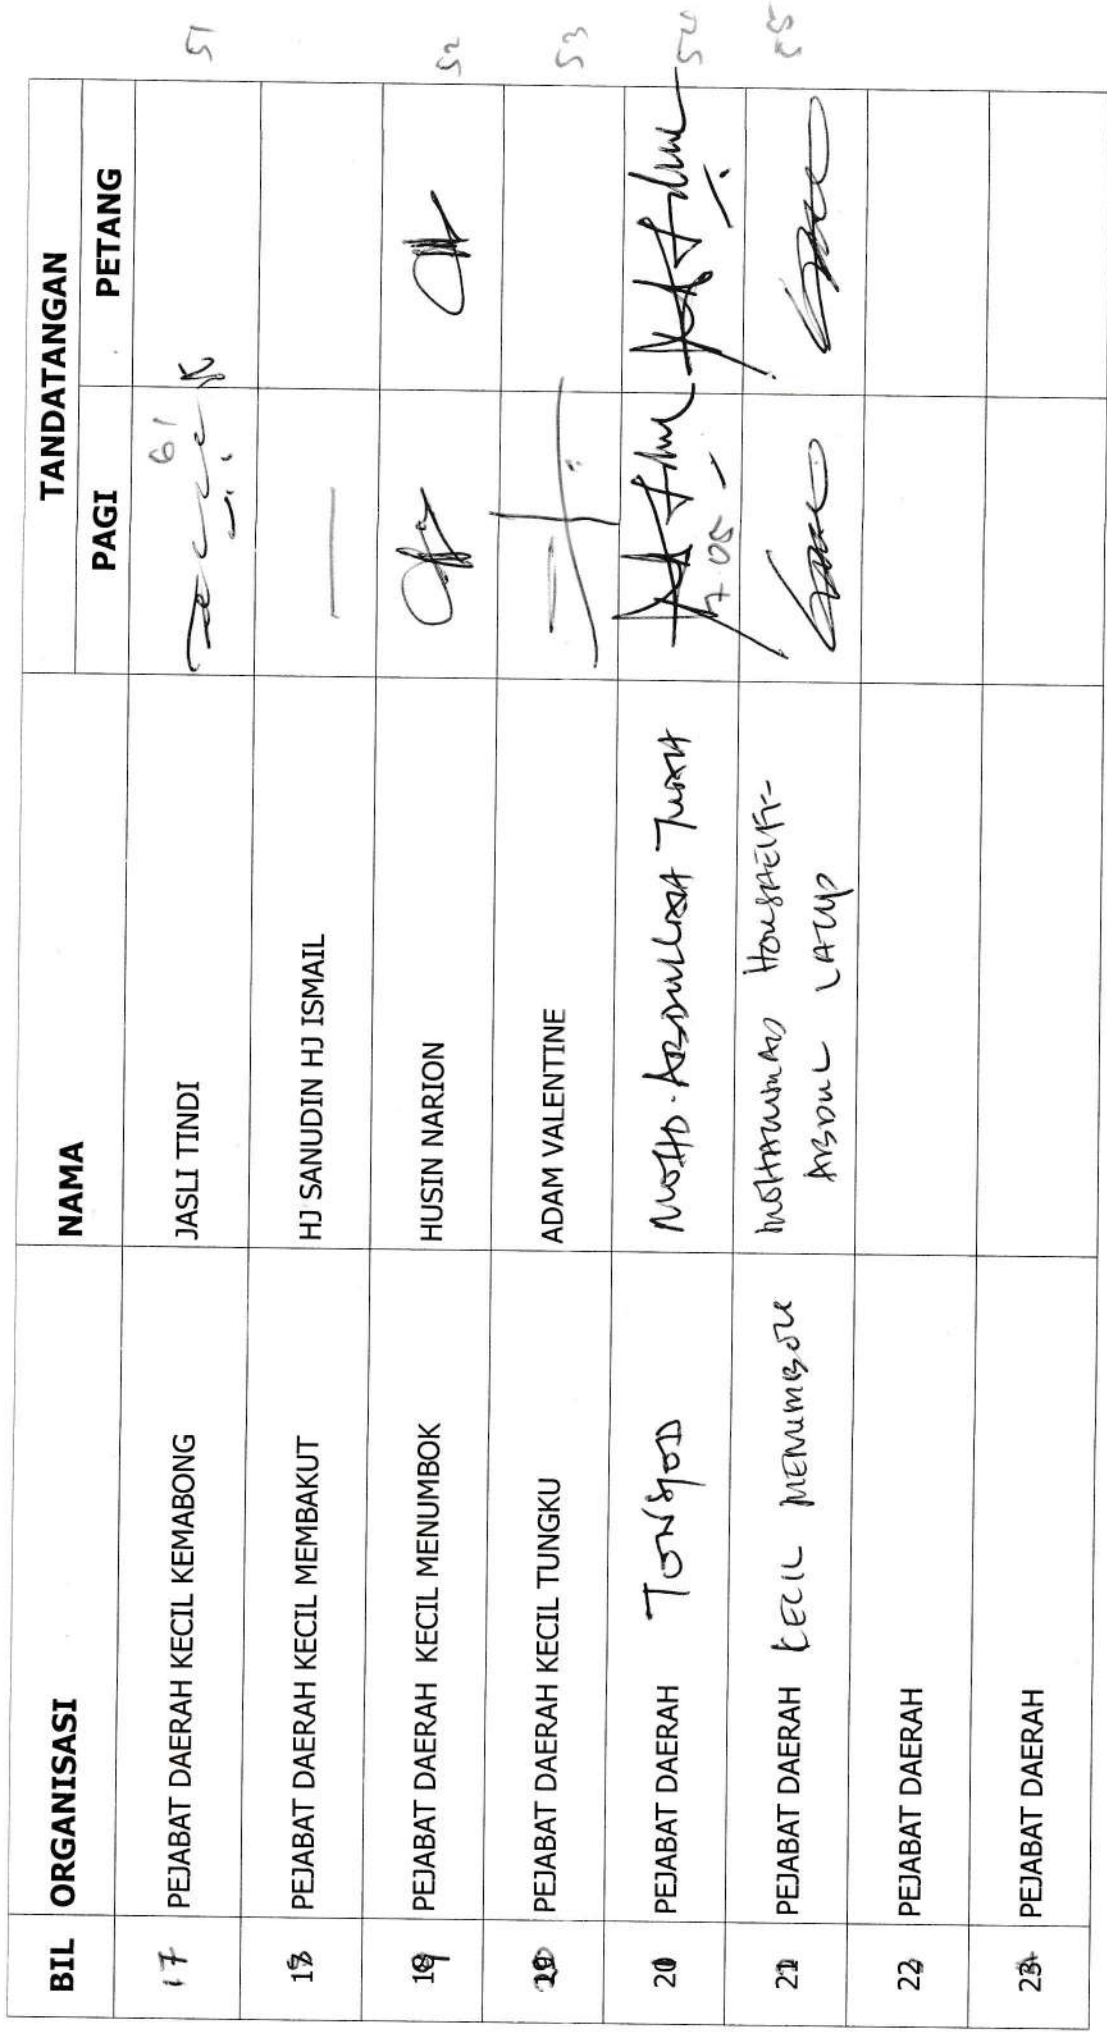 BIL ORGANISASI NAMA TANDATANGAN
PAGI PETANG
17 PEJABAT DAERAH KECIL KEMABONG JASLI TINDI 51
PEJABAT DAERAH KECIL MEMBAKUT HJ SANUDIN HJ ISMAIL
PEJABAT DAERAH KECIL MENUMBOK HUSIN NARION 52
PEJABAT DAERAH KECIL TUNGKU ADAM VALENTINE 53
PEJABAT DAERAH TONGOD MOHD. ABDULLAH TUAH 54
7.05
PEJABAT DAERAH KECIL MENUMBOK MOHAMMAD
ABDUL LATIP 55
PEJABAT DAERAH
PEJABAT DAERAH